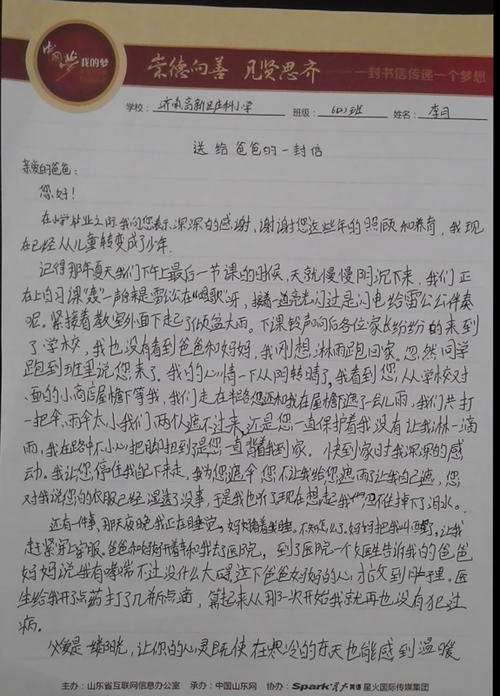 中国梦 我的梦
崇德向善 见贤思齐 —— 一封书信传递一个梦想
学校: 济南高新区庄科小学 班级: 6(2)班 姓名: 李月
送给爸爸的一封信
亲爱的爸爸:
您好!
在小学毕业之际我向您表示深深的感谢,谢谢您这些年的照顾和养育,我现
在已经从儿童转变成了少年.
记得那年夏天我们下午上最后一节课的时候,天就慢慢阴沉下来,我们正
在上自习课“轰”一声雷公在唱歌呀,接着一道亮光闪过是闪电给雷公公伴奏
呢。紧接着教室外面下起了倾盆大雨。下课铃声响后各位家长纷纷的来到
了学校,我也没有看到爸爸和妈妈,我刚想淋雨跑回家。忽然同学
跑到班里说您来了。我的心情一下从阴转晴了,我看到您,从学校对
面的小商店屋檐下等我,我们走在半路您还和我在屋檐下避了一会儿雨,我们共打
一把伞,雨伞太小我们两个遮不过来,还是您一直保护着我没有让我淋一滴
雨,我在路中不小心把脚扭到了是您一直背着我到家。快到家时我深深的感
动。我让您停住我配下来走,我为您遮伞您不让我给您遮雨了让我自己遮,您
对我说您的衣服已经湿透了没事,于是我也听了现在想起我忍不住掉下了泪水。
还有一件事,那天夜晚我正在睡觉,妈妈搂着我睡,不知怎么了妈妈把我叫醒了,让我
赶紧穿上衣服。爸爸和妈妈开着车和我去了医院,到了医院一个女医生告诉我的爸爸
妈妈说我有哮喘不过没什么大碍这下爸爸妈妈的心才放到肚里。医
生给我开了点药打了几瓶点滴,算起来从那一次开始我就再也没有犯过
病。
父爱是一缕阳光,让你的心灵既使在寒冷的冬天也能感到温暖
主办:山东省互联网信息办公室 承办:中国山东网 协办:Spark星火英语 星火国际传媒集团